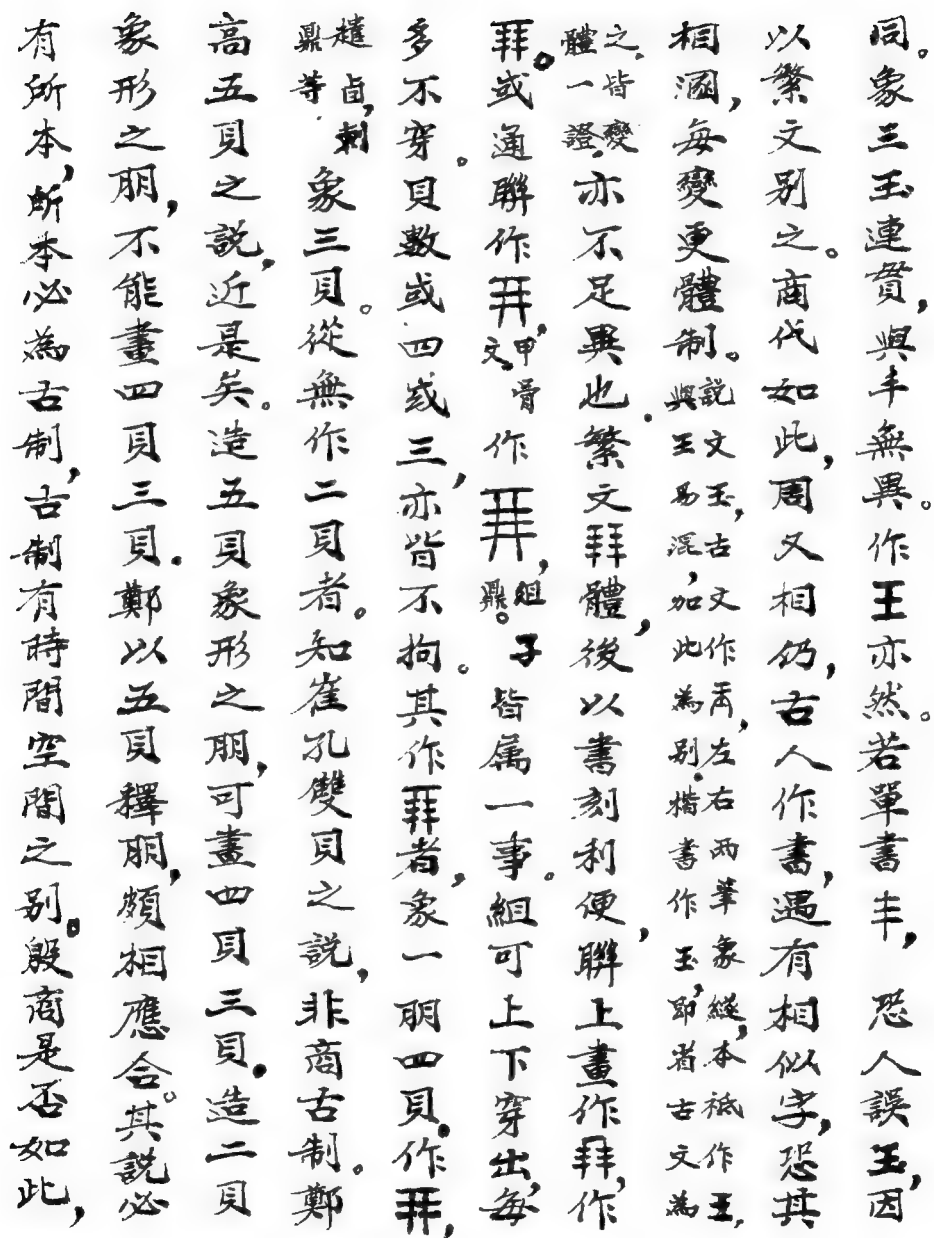 同。象三玉連貫，與丰無異。作王亦然。若單書丰，恐人誤玉，因
以繁文別之。商代如此，周又相仍，古人作書，遇有相似字，恐其
相溷，每變更體制。説文玉，古文作，左右兩筆象縫，本祇作王，與王易混，加此為别。楷書作玉，即省古文為
之。皆變體一證。亦不足異也。繁文體，後以書刻利便，聯上畫作，作
。或通聯作，甲骨文。作，組鼎。子皆属一事。組可上下穿出，每
多不穿。貝數或四或三，亦皆不拘。其作者，象一朋四貝。作，
趞卣，剌鼎等象三貝。從無作二貝者。知崔孔雙貝之説，非商古制。鄭
高五貝之説，近是矣。造五貝象形之朋，可畫四貝三貝。造二貝
象形之朋，不能畫四貝三貝。鄭以五貝釋朋，頗相應合。其說必
有所本，所本必為古制，古制有時間空間之别。殷商是否如此，